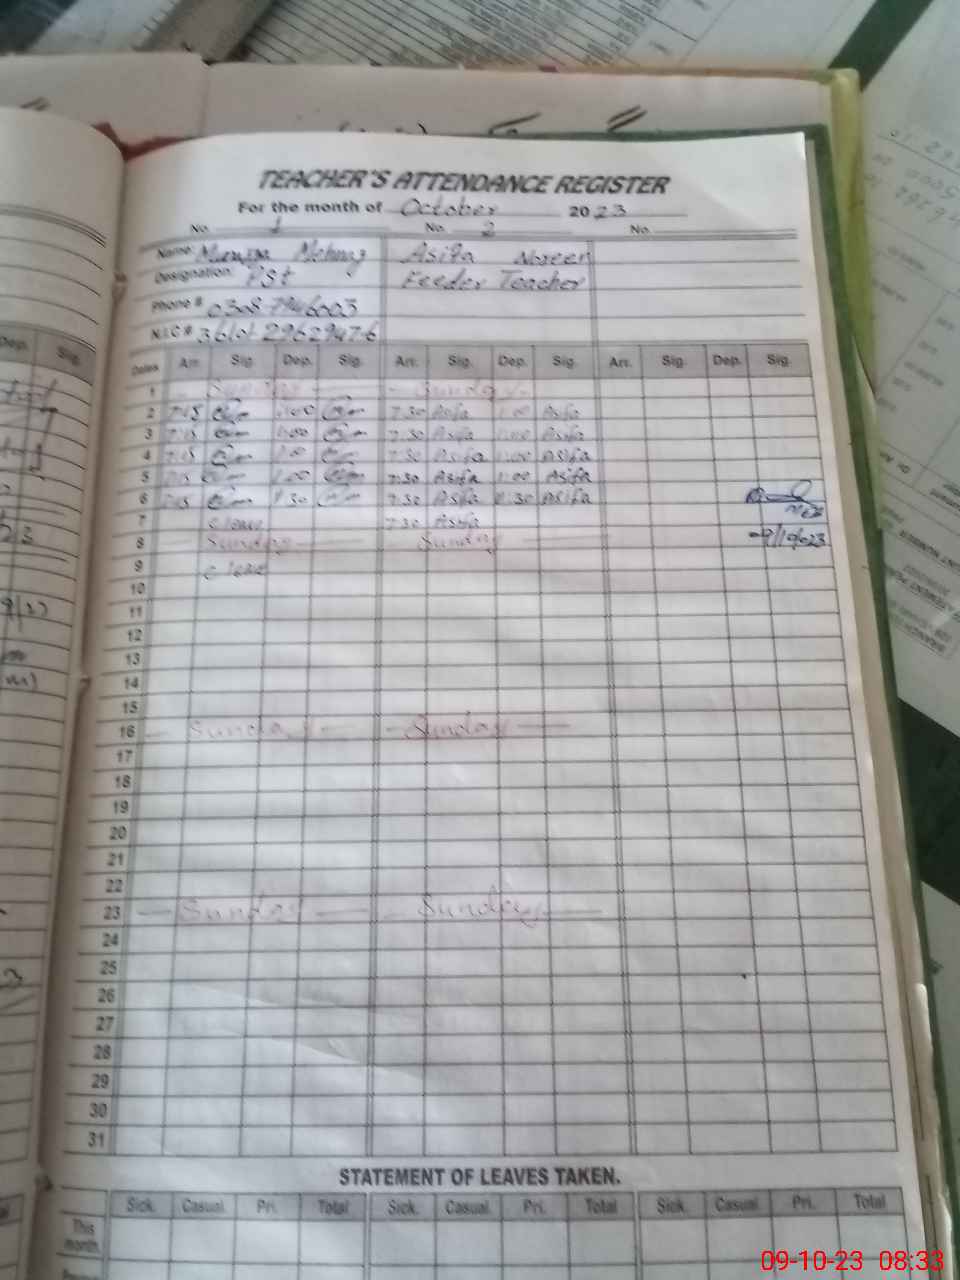 TEACHER'S ATTENDANCE REGISTER
For the month of October 2023
No. 1 No. 2 No.
Name: Mehnaz Asifa Noreen
Designation: Pst Feeder Teacher
Phone # 0308-7946003
N.I.C #
Dates Arr. Sig. Dep. Sig. Arr. Sig. Dep. Sig. Arr. Sig. Dep. Sig.
1 Sunday Sunday
2 7:15 1:00 7:30 Asifa 1:00 Asifa
3 7:15 1:00 7:30 Asifa 1:00 Asifa
4 7:15 1:00 7:30 Asifa 1:00 Asifa
5 7:15 1:00 7:30 Asifa 1:00 Asifa
6 7:15 7:30 Asifa Asifa
7 c leave 7:30 Asifa
8 Sunday Sunday
9 c leave
10
11
12
13
14
15
16 Sunday Sunday
17
18
19
20
21
22
23 Sunday Sunday
24
25
26
27
28
29
30
31
STATEMENT OF LEAVES TAKEN.
Sick. Casual. Pri. Total Sick. Casual. Pri. Total Sick. Casual. Pri. Total
This month.
09-10-23 08:33